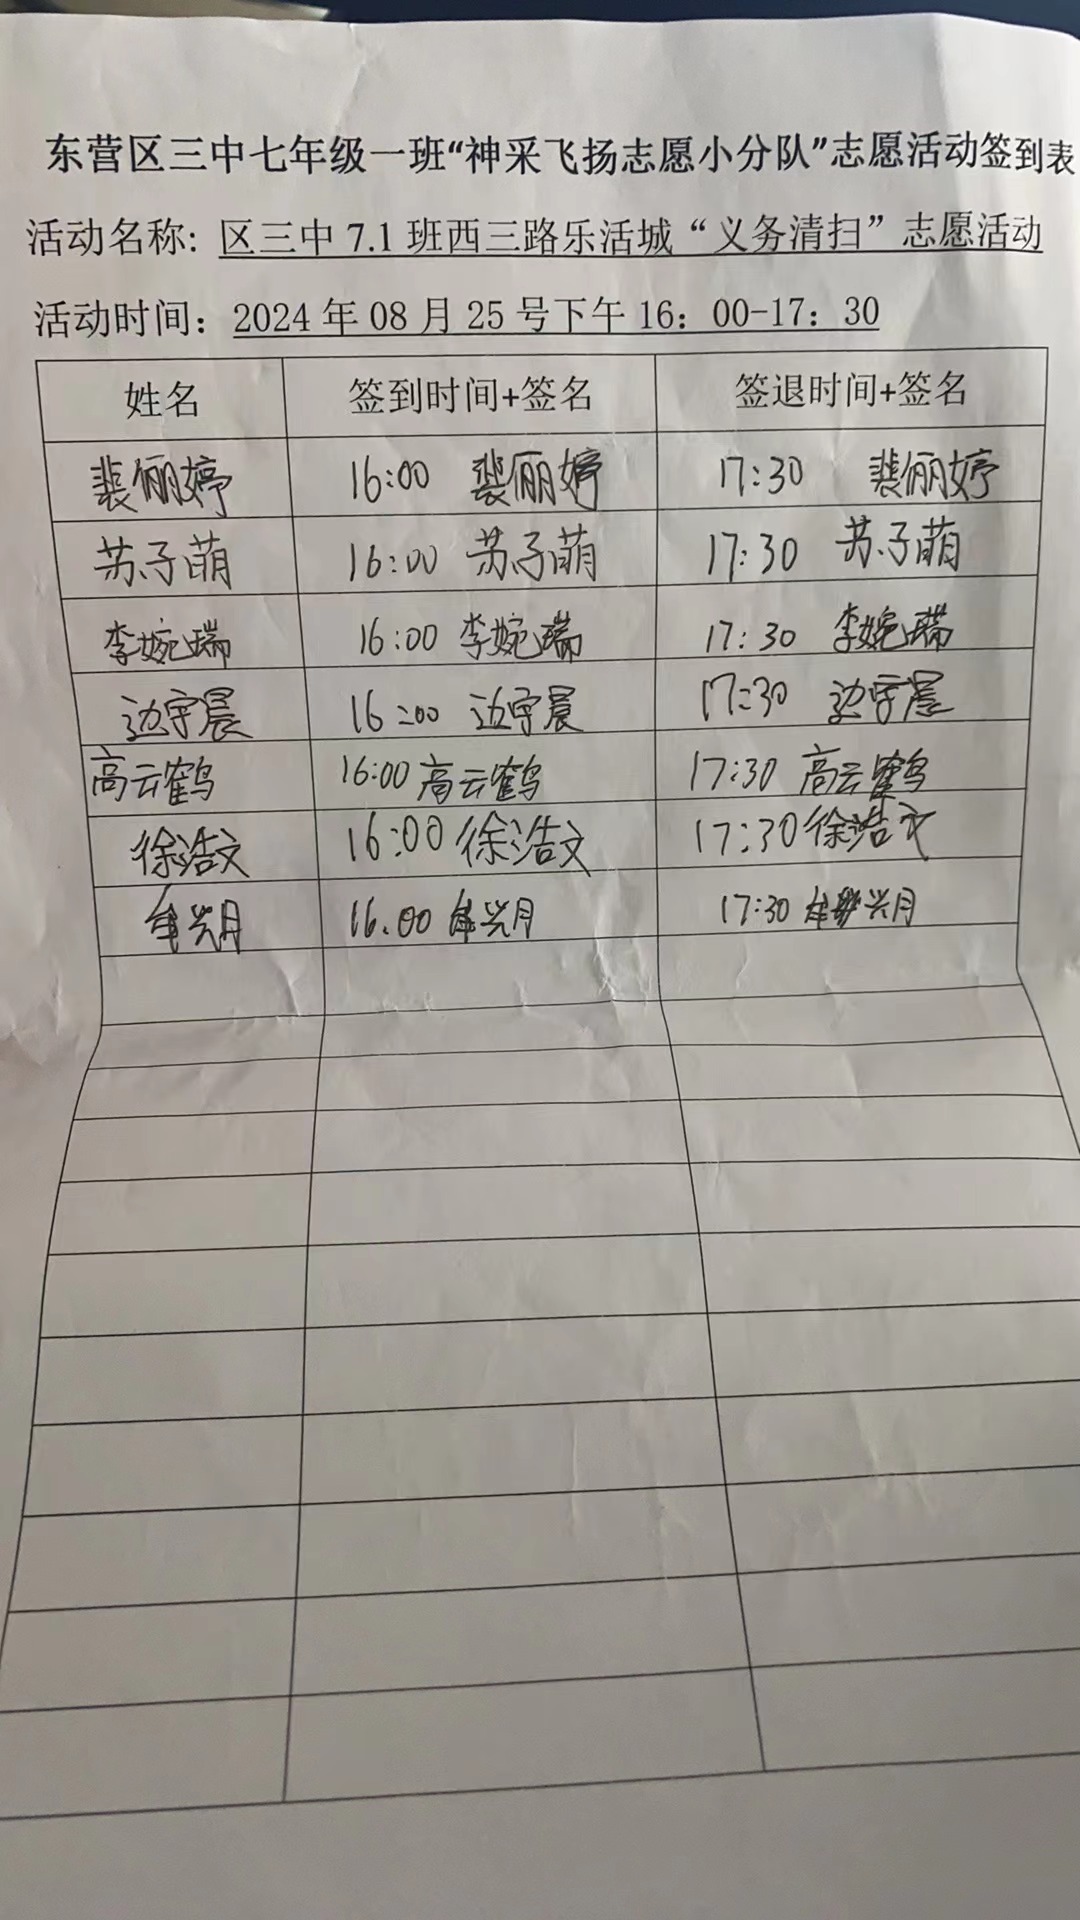 东营区三中七年级一班“神采飞扬志愿小分队”志愿活动签到表
活动名称: 区三中 7.1 班西三路乐活城“义务清扫”志愿活动
活动时间：2024 年 08 月 25 号下午 16：00-17：30
姓名 签到时间+签名 签退时间+签名
裴俪婷 16:00 裴俪婷 17:30 裴俪婷
苏子萌 16:00 苏子萌 17:30 苏子萌
李婉瑞 16:00 李婉瑞 17:30 李婉瑞
边宇晨 16:00 边宇晨 17:30 边宇晨
高云鹤 16:00 高云鹤 17:30 高云鹤
徐浩文 16:00 徐浩文 17:30 徐浩文
牟兴月 16.00 牟兴月 17:30 牟兴月